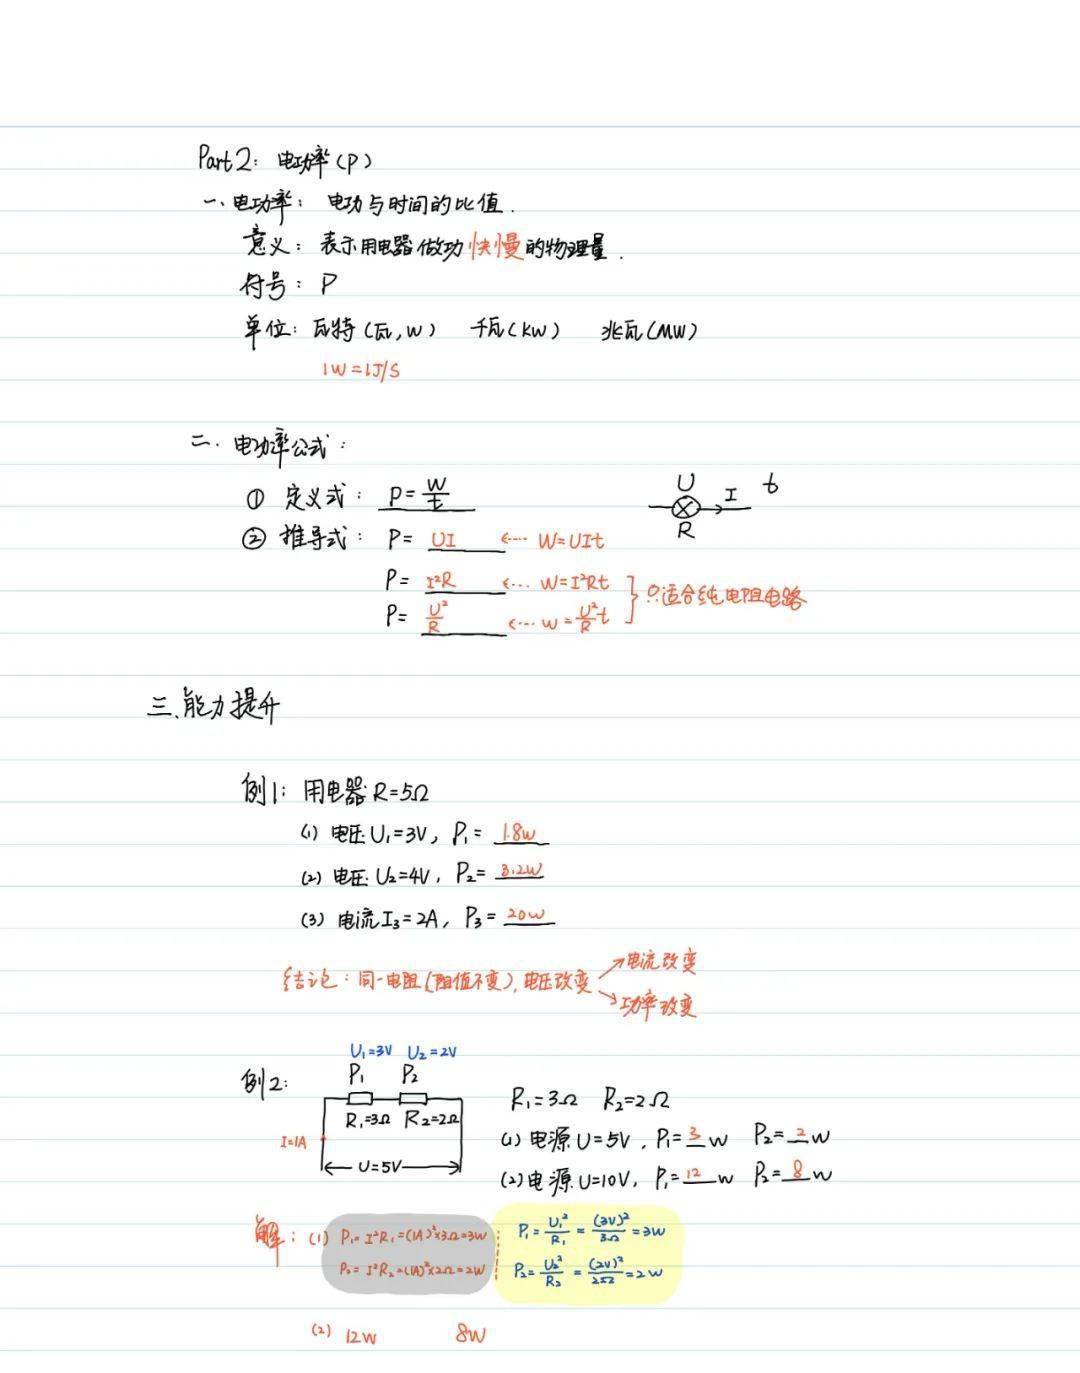 Part2: 电功率(P)
一、电功率: 电功与时间的比值.
意义: 表示用电器做功快慢的物理量.
符号: P
单位: 瓦特(瓦,W) 千瓦(KW) 兆瓦(MW)
1W=1J/S
二. 电功率公式:
① 定义式: P=W/t
U I t R
② 推导式: P= UI ⇠ W=UIt
P= I²R ⇠ W=I²Rt
P= U²/R ⇠ W=U²/R t
只适合纯电阻电路
三、能力提升
例1: 用电器R=5Ω
(1) 电压U₁=3V, P₁= 1.8W
(2) 电压U₂=4V, P₂= 3.2W
(3) 电流I₃=2A, P₃= 20W
结论: 同一电阻(阻值不变), 电压改变
电流改变
功率改变
例2:
U₁=3V U₂=2V
P₁ P₂
R₁=3Ω R₂=2Ω
I=1A
U=5V
R₁=3Ω R₂=2Ω
(1) 电源U=5V, P₁=3W P₂=2W
(2) 电源U=10V, P₁=12W P₂=8W
解: (1) P₁=I²R₁=(1A)²×3Ω=3W
P₂=I²R₂=(1A)²×2Ω=2W
P₁=U₁²/R₁=(3V)²/3Ω=3W
P₂=U₂²/R₂=(2V)²/2Ω=2W
(2) 12W 8W